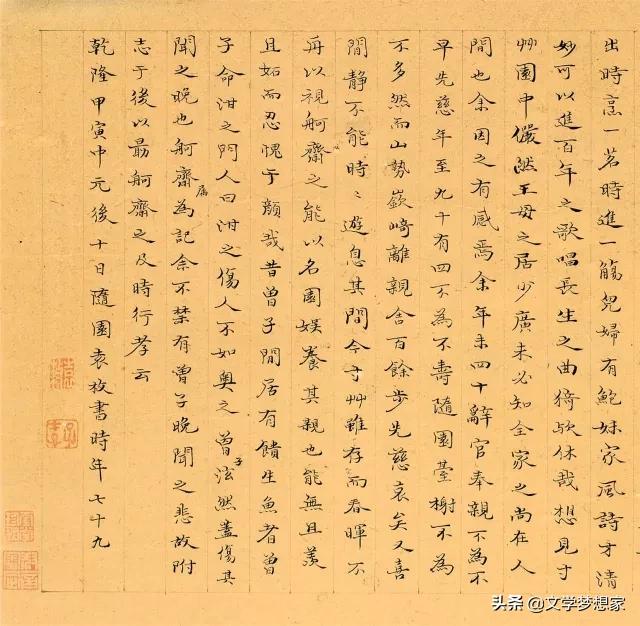 出時烹一茗時進一觴兒婦有鮑妹家風詩才清
妙可以進百年之歌唱長生之曲猗歟休哉想見寸
艸園中儼然王母之居少廣未必知全家之尚在人
間也余因之有感焉余年未四十辭官奉親不為不
早先慈年至九十有四不為不壽隨園臺榭不為
不多然而山勢嶔崎離親舍百餘步先慈衰矣又喜
閒靜不能時〻遊息其間今寸艸雖存而春暉不
再以視舸齋之能以名園娛養其親也能無且羨
且妬而忍愧于顏哉昔曾子閒居有饋生魚者曾
子命泔之門人曰泔之傷人不如奧之曾子泫然蓋傷其
聞之晚也舸齋屬為記余不禁有曾子晚聞之悲故附
志于後以勗舸齋之及時行孝云
乾隆甲寅中元後十日隨園袁枚書時年七十九
头条 @文学梦想家